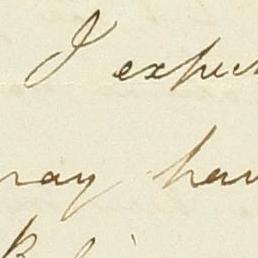 I expect
may have